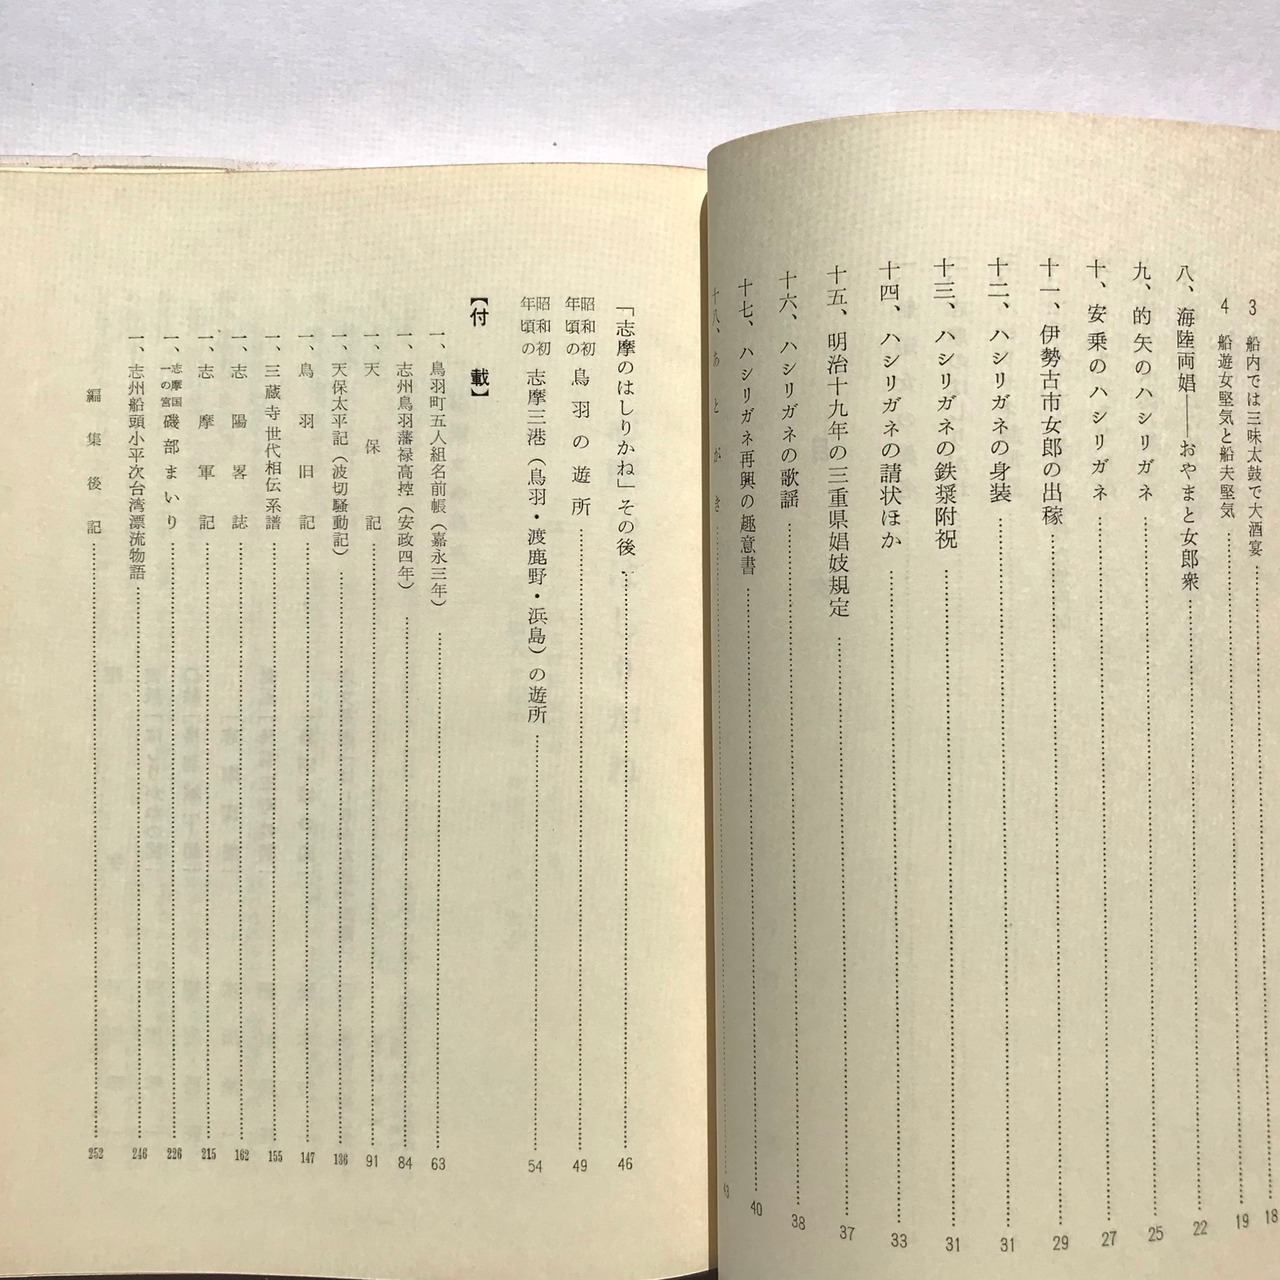 3 船内では三味太鼓で大酒宴 18
4 船遊女堅気と船夫堅気 19
八、海陸両娼――おやまと女郎衆 22
九、的矢のハシリガネ 25
十、安乗のハシリガネ 27
十一、伊勢古市女郎の出稼 29
十二、ハシリガネの身装 31
十三、ハシリガネの鉄漿附祝 31
十四、ハシリガネの請状ほか 33
十五、明治十九年の三重県娼妓規定 37
十六、ハシリガネの歌謡 38
十七、ハシリガネ再興の趣意書 40
十八、あとがき 43
「志摩のはしりかね」その後 46
昭和初年頃の 鳥羽の遊所 49
昭和初年頃の 志摩三港(鳥羽・渡鹿野・浜島)の遊所 54
【付載】
一、鳥羽町五人組名前帳(嘉永三年) 63
一、志州鳥羽藩禄高控(安政四年) 84
一、天保記 91
一、天保太平記(波切騒動記) 136
一、鳥羽旧記 147
一、三蔵寺世代相伝系譜 155
一、志陽畧誌 162
一、志摩軍記 215
一、志摩国一の宮 磯部まいり 226
一、志州船頭小平次台湾漂流物語 246
編集後記 252